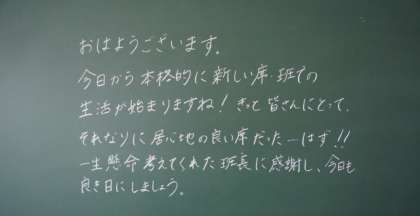 おはようございます。
今日から本格的に新しい席・班での
生活が始まりますね！きっと皆さんにとって、
それなりに居心地の良い席だった…はず!!
一生懸命考えてくれた班長に感謝し、今日も
良き日にしましょう。